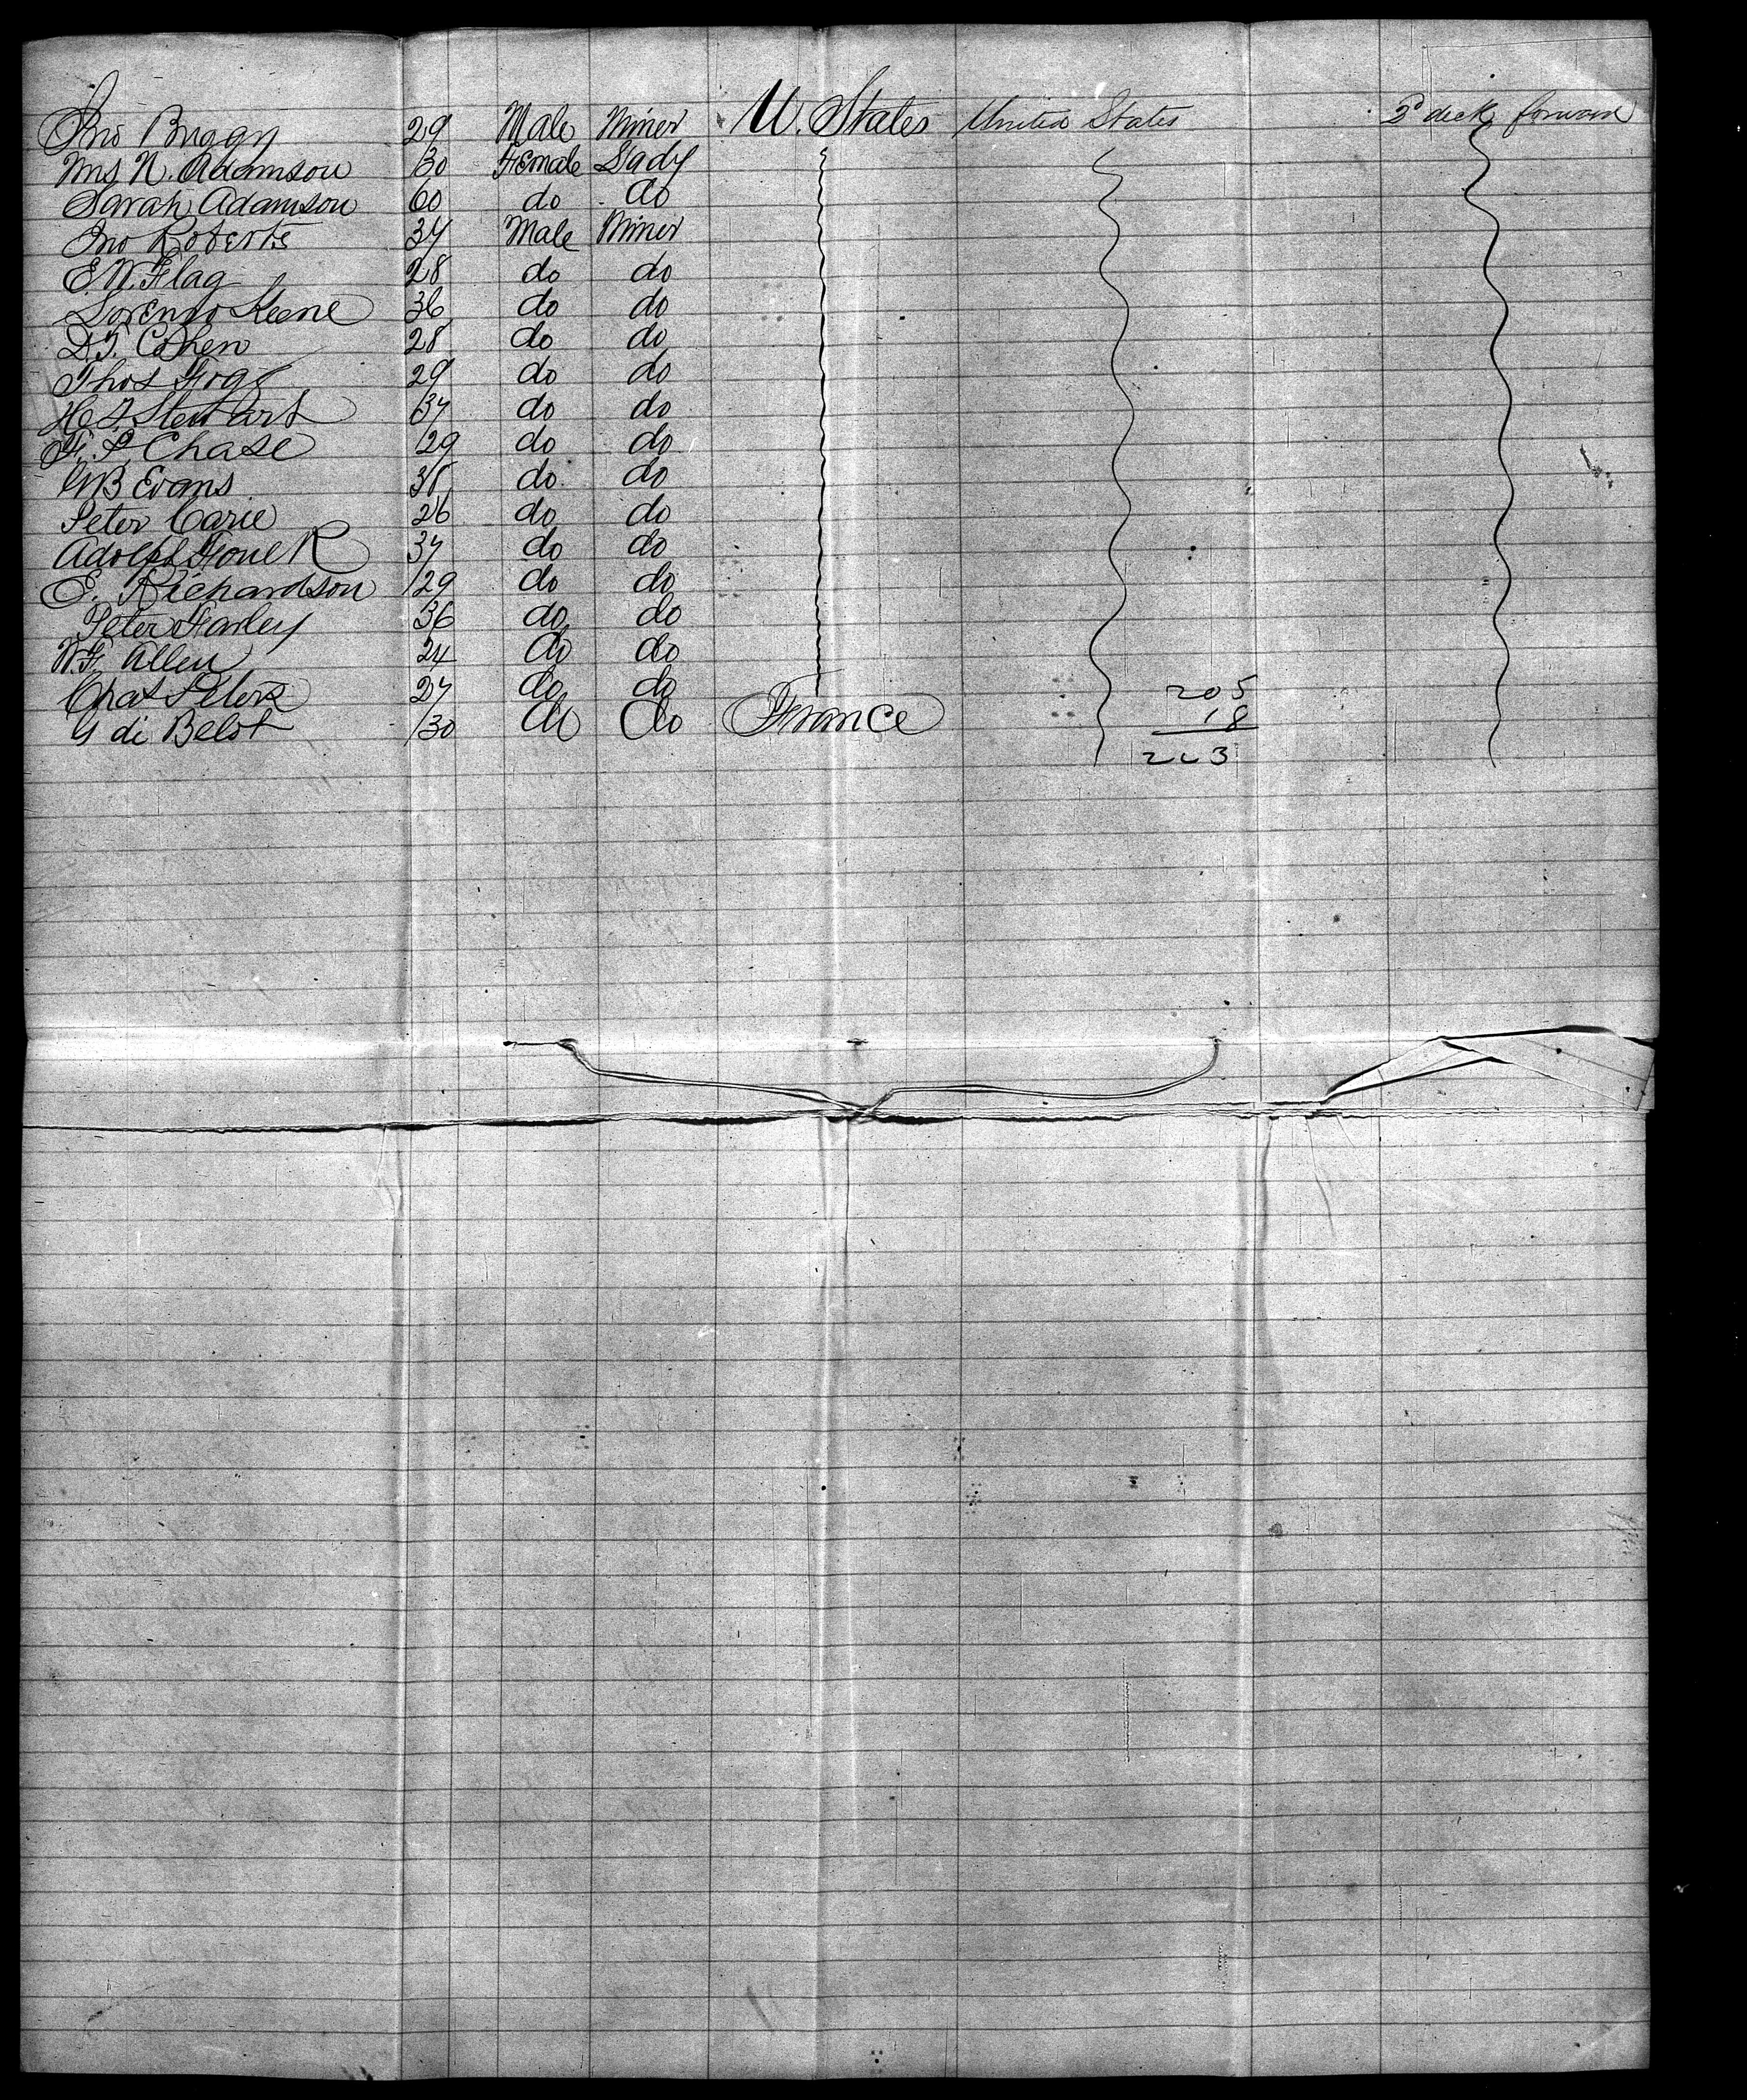 Jno Briggs 29 Male Miner U. States United States 2d deck forward
Mrs N. Adamson 30 Female Lady
Sarah Adamson 60 do do
Jno Roberts 34 Male Miner
E. W. Flag 28 do do
Lorenzo Keene 36 do do
D. T. Cohen 28 do do
Thos Fogg 29 do do
H. T. Stewart 34 do do
F. S. Chase 29 do do
B Evans 38 do do
Peter Carie 26 do do
Adolph 34 do do
E. Richardson 29 do do
Peter Farley 36 do do
W. F. Allen 24 do do
Chas Peters 27 do do 205
G di Belot 30 do do France 18
223